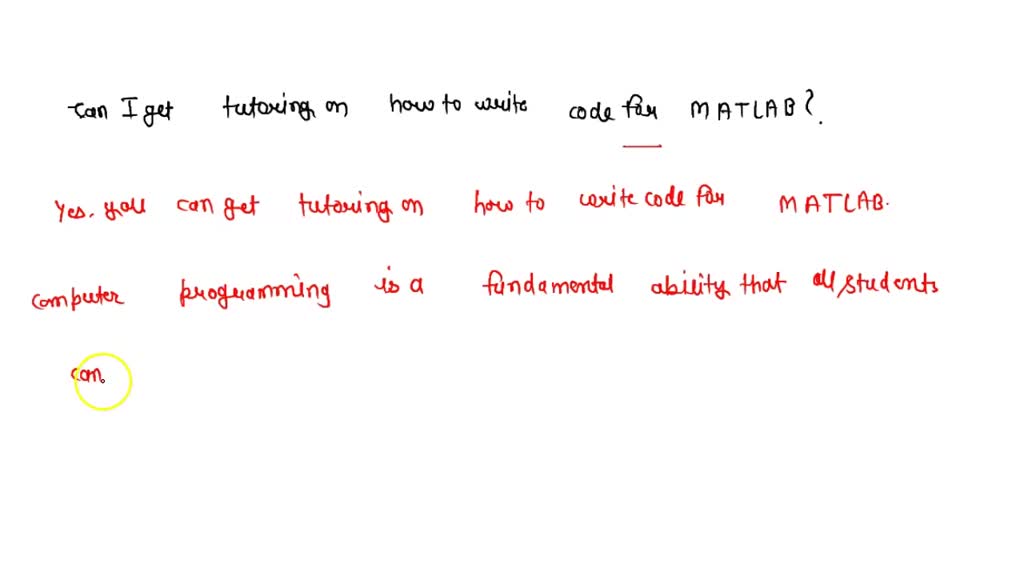 can I get tutoring on how to write code for MATLAB?
Yes. you can get tutoring on how to write code for MATLAB.
computer programming is a fundamental ability that all students
can